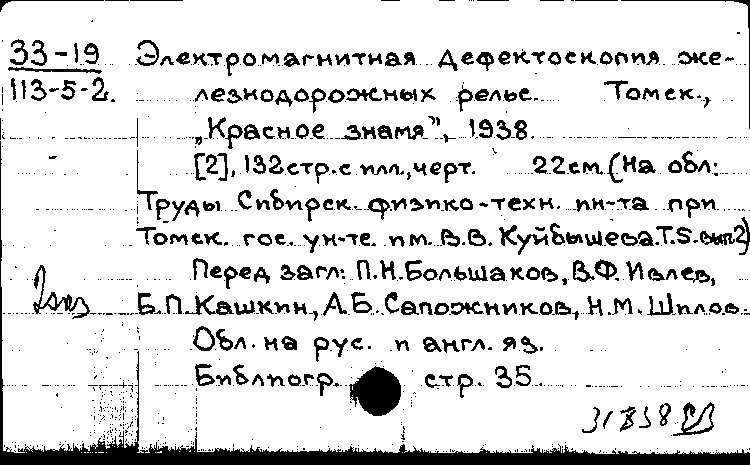 33-19 Электромагнитная дефектоскопия же-
113-5-2. лезнодорожных рельс. Томск.,
„Красное знамя”, 1938.
[2], 132 стр. с илл., черт. 22 см. (На обл:
Труды Сибирск. физико-техн. ин-та при
Томск. гос. ун-те. им. В.В. Куйбышева. Т.5. вып 2)
Перед загл: П.Н. Большаков, В.Ф. Ивлев,
2 экз Б.П. Кашкин, А.Б. Сапожников, Н.М. Шилов.
Обл. на рус. и англ. яз.
Библиогр. стр. 35.